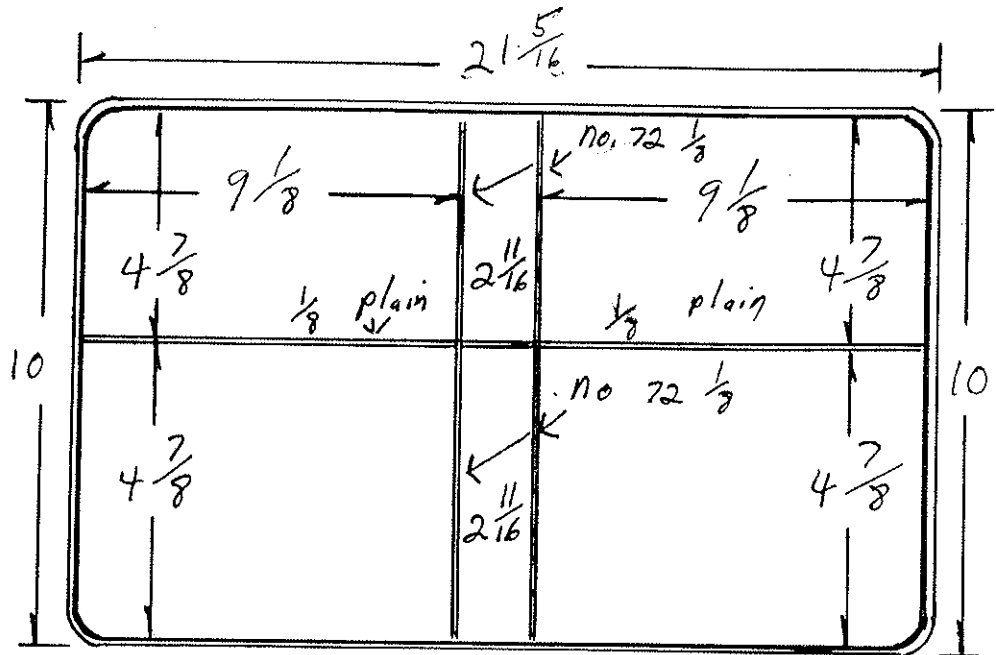 21 5/16
no. 72 1/8
9 1/8
9 1/8
4 7/8
2 11/16
4 7/8
1/8 plain
1/8 plain
10
10
no 72 1/8
4 7/8
2 11/16
4 7/8